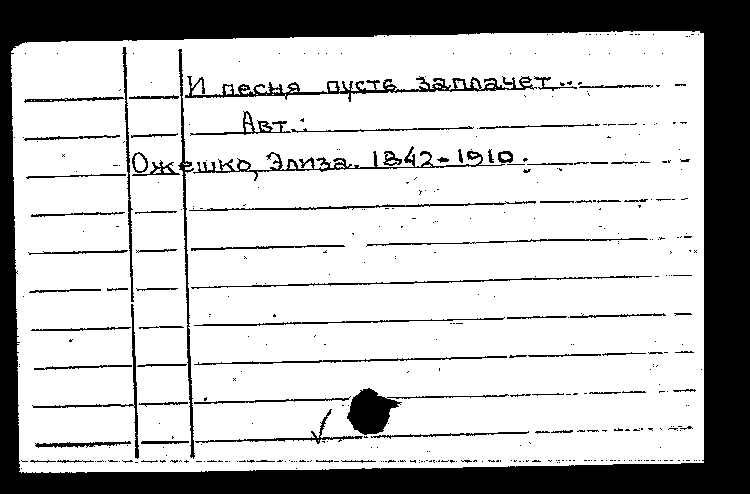 И песня пусть заплачет...
Авт.:
Ожешко, Элиза. 1842-1910.